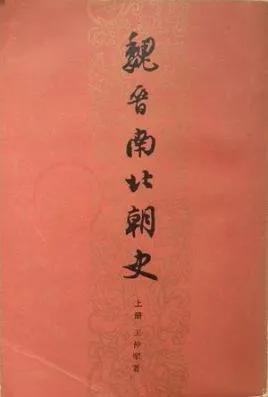 魏晋南北朝史
上册 王仲荦著